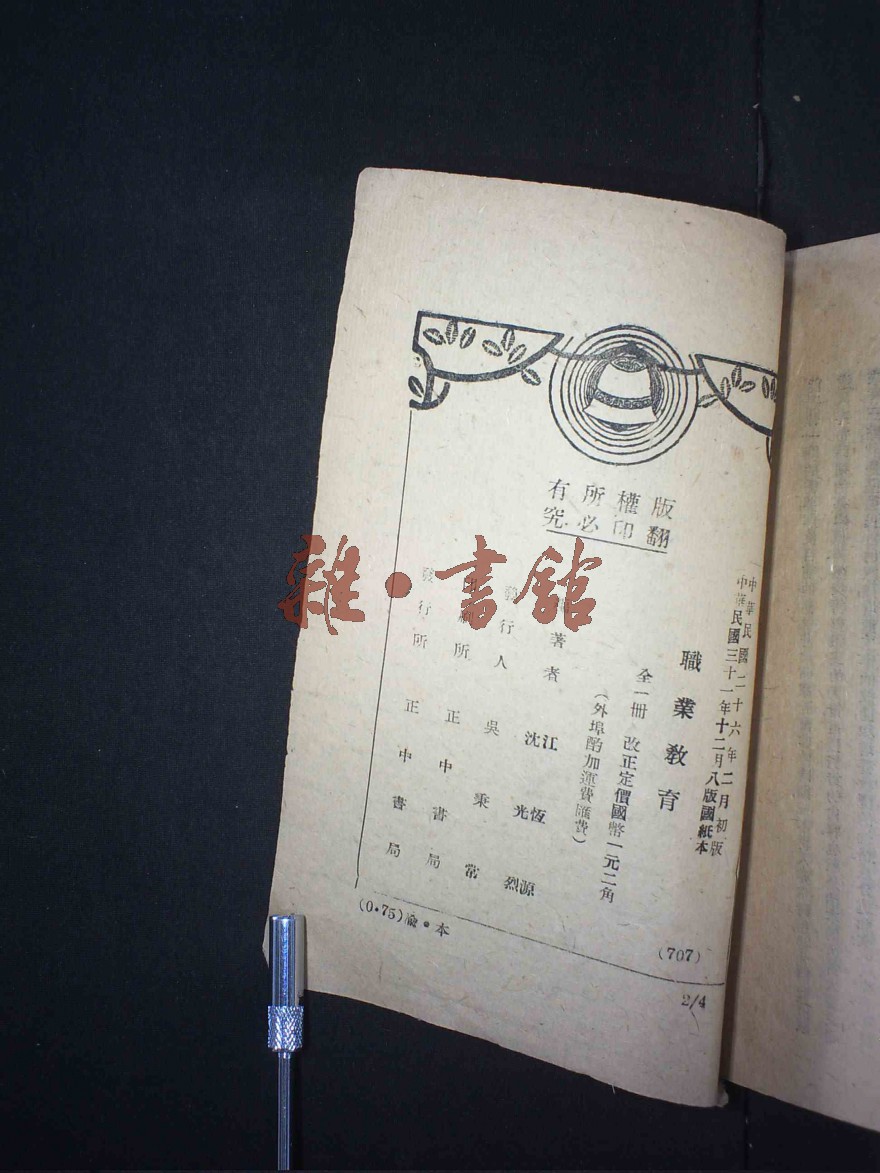 版權所有
翻印必究
中華民國二十六年二月初版
中華民國三十一年十二月八版國紙本
職業教育
全一冊 改正定價國幣一元二角
(外埠酌加運費匯費)
著者 江恆源 沈光烈
發行人 吳秉常
印刷所 正中書局
發行所 正中書局
(707)
(0·75)渝·本
2/4
雜·書館